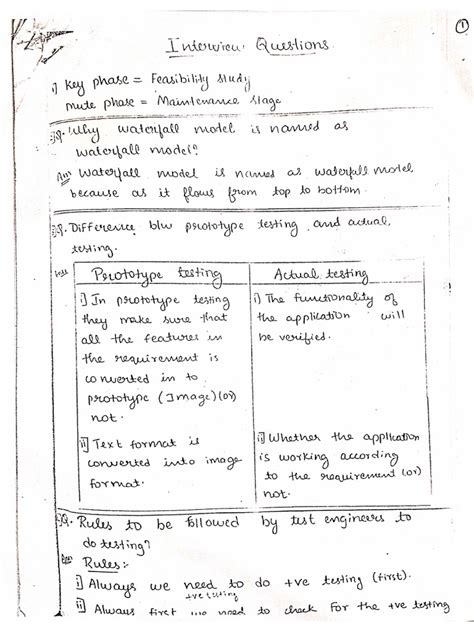 ①
Interview Questions
1) Key phase = Feasibility study
mute phase = Maintenance stage
Q. Why waterfall model is named as
waterfall model?
Ans Waterfall model is named as waterfall model
because as it flows from top to bottom.
Q. Difference b/w prototype testing and actual
testing.
Prototype testing
i) In prototype testing
they make sure that
all the features in
the requirement is
converted in to
prototype (Image)(or)
not.
ii) Text format is
converted into image
format.
Actual testing
i) The functionality of
the application will
be verified.
ii) Whether the application
is working according
to the requirement (or)
not.
Q. Rules to be followed by test engineers to
do testing?
Ans Rules:-
i) Always we need to do +ve testing (first).
+ve testing
ii) Always first we need to check for the +ve testing